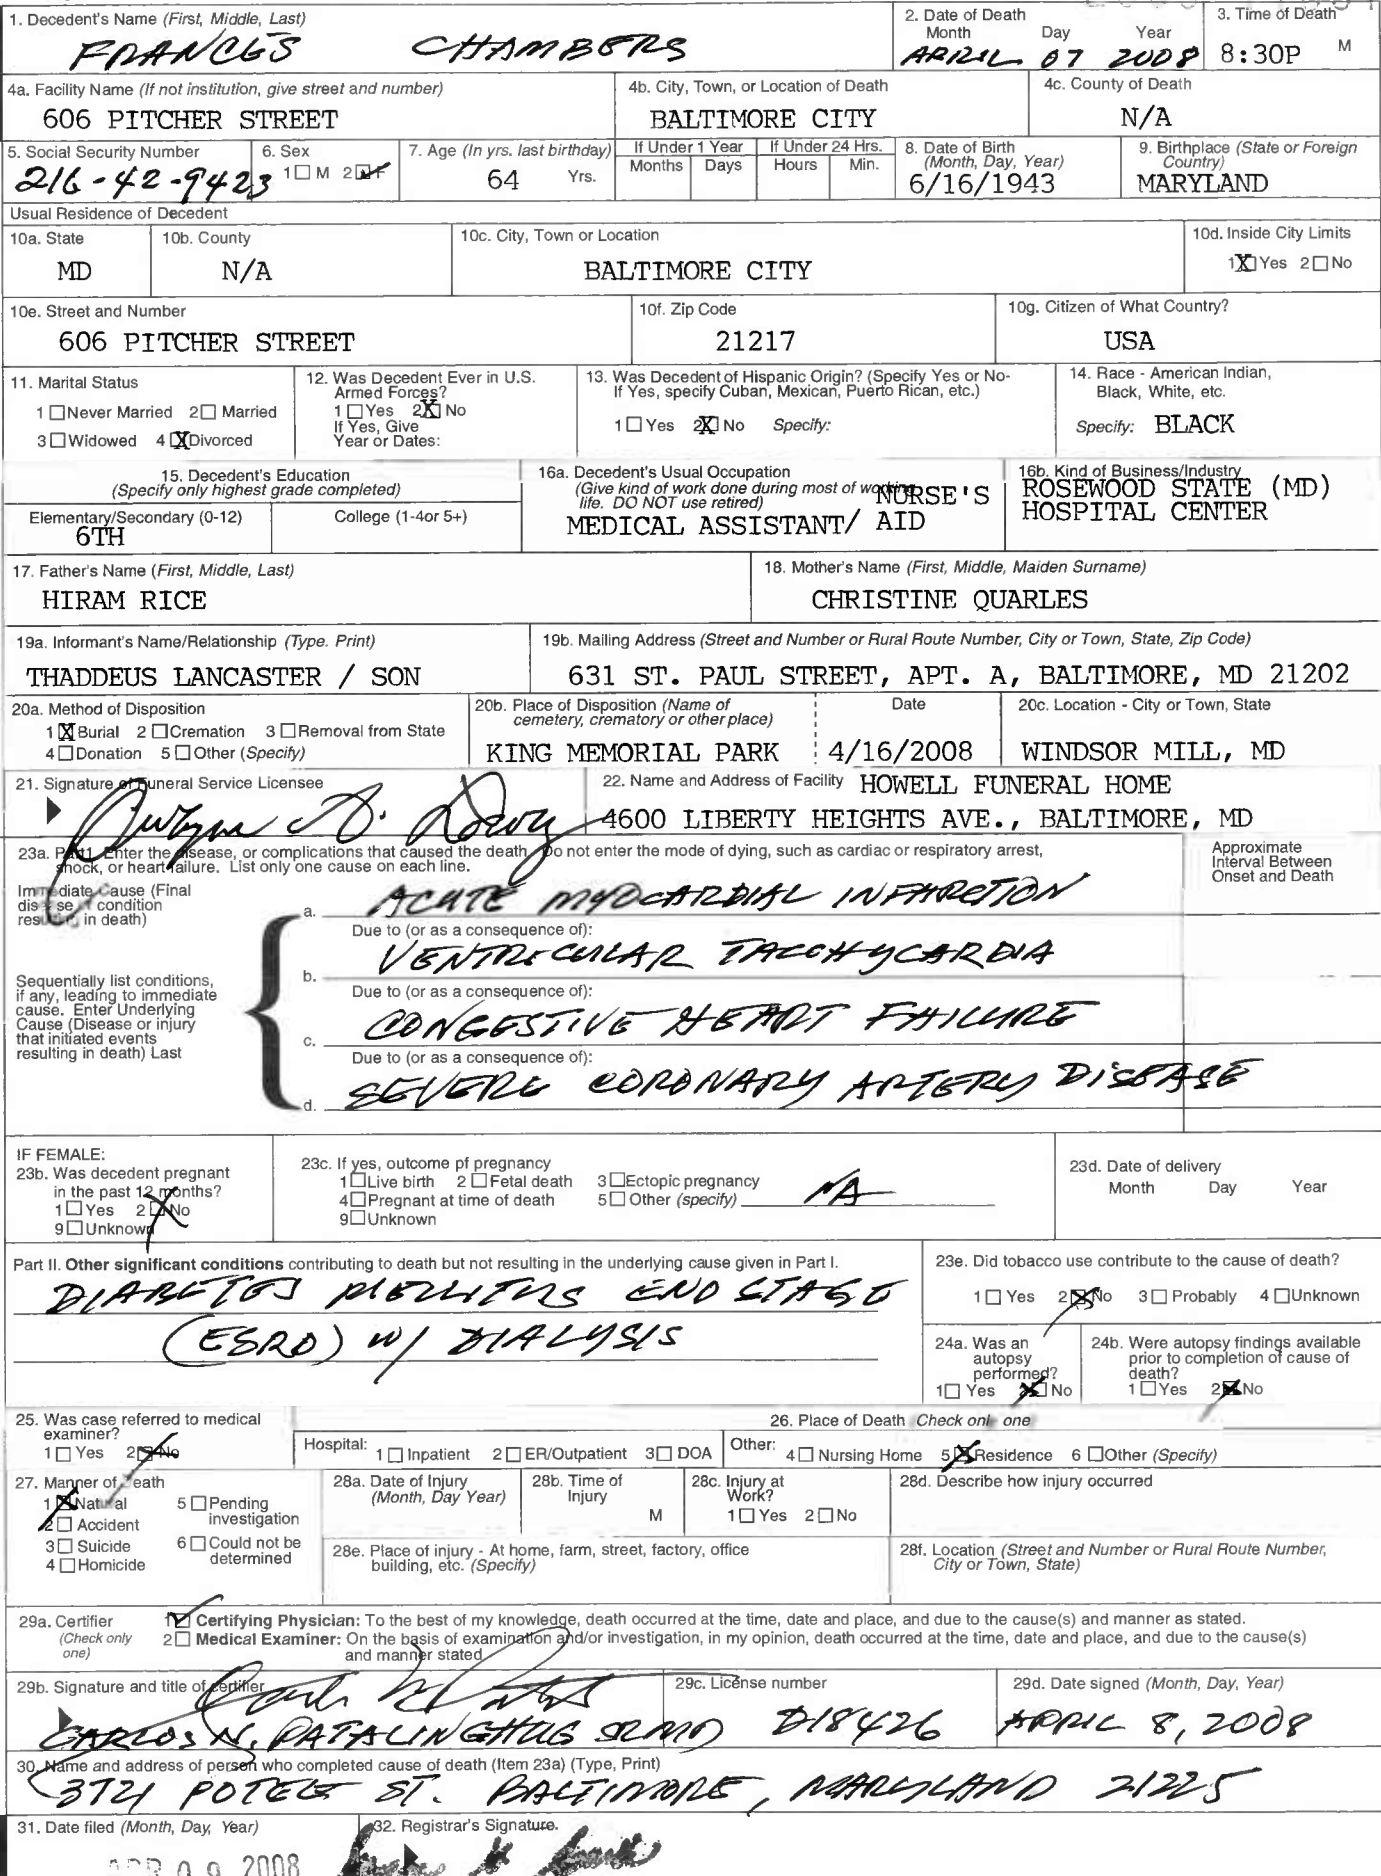 1. Decedent's Name (First, Middle, Last)
FRANCES CHAMBERS
2. Date of Death
Month Day Year
APRIL 07 2008
3. Time of Death
8:30P M
4a. Facility Name (If not institution, give street and number)
606 PITCHER STREET
4b. City, Town, or Location of Death
BALTIMORE CITY
4c. County of Death
N/A
5. Social Security Number
216-42-9423
6. Sex
1 M 2 F
7. Age (In yrs. last birthday)
64 Yrs.
If Under 1 Year
Months Days
If Under 24 Hrs.
Hours Min.
8. Date of Birth
(Month, Day, Year)
6/16/1943
9. Birthplace (State or Foreign
Country)
MARYLAND
Usual Residence of Decedent
10a. State
MD
10b. County
N/A
10c. City, Town or Location
BALTIMORE CITY
10d. Inside City Limits
1 X Yes 2 No
10e. Street and Number
606 PITCHER STREET
10f. Zip Code
21217
10g. Citizen of What Country?
USA
11. Marital Status
1 Never Married 2 Married
3 Widowed 4 X Divorced
12. Was Decedent Ever in U.S.
Armed Forces?
1 Yes 2 X No
If Yes, Give
Year or Dates:
13. Was Decedent of Hispanic Origin? (Specify Yes or No-
If Yes, specify Cuban, Mexican, Puerto Rican, etc.)
1 Yes 2 X No Specify:
14. Race - American Indian,
Black, White, etc.
Specify: BLACK
15. Decedent's Education
(Specify only highest grade completed)
Elementary/Secondary (0-12)
6TH
College (1-4or 5+)
16a. Decedent's Usual Occupation
(Give kind of work done during most of working
life. DO NOT use retired)
NURSE'S
MEDICAL ASSISTANT/ AID
16b. Kind of Business/Industry
ROSEWOOD STATE (MD)
HOSPITAL CENTER
17. Father's Name (First, Middle, Last)
HIRAM RICE
18. Mother's Name (First, Middle, Maiden Surname)
CHRISTINE QUARLES
19a. Informant's Name/Relationship (Type. Print)
THADDEUS LANCASTER / SON
19b. Mailing Address (Street and Number or Rural Route Number, City or Town, State, Zip Code)
631 ST. PAUL STREET, APT. A, BALTIMORE, MD 21202
20a. Method of Disposition
1 X Burial 2 Cremation 3 Removal from State
4 Donation 5 Other (Specify)
20b. Place of Disposition (Name of
cemetery, crematory or other place)
KING MEMORIAL PARK
Date
4/16/2008
20c. Location - City or Town, State
WINDSOR MILL, MD
21. Signature of Funeral Service Licensee
22. Name and Address of Facility HOWELL FUNERAL HOME
4600 LIBERTY HEIGHTS AVE., BALTIMORE, MD
23a. Part I. Enter the disease, or complications that caused the death. Do not enter the mode of dying, such as cardiac or respiratory arrest,
shock, or heart failure. List only one cause on each line.
Approximate
Interval Between
Onset and Death
Immediate Cause (Final
disease, or condition
resulting in death)
a. ACUTE MYOCARDIAL INFARCTION
Due to (or as a consequence of):
b. VENTRICULAR TACCHYCARDIA
Sequentially list conditions,
if any, leading to immediate
cause. Enter Underlying
Cause (Disease or injury
that initiated events
resulting in death) Last
Due to (or as a consequence of):
c. CONGESTIVE HEART FAILURE
Due to (or as a consequence of):
d. SEVERE CORONARY ARTERY DISEASE
IF FEMALE:
23b. Was decedent pregnant
in the past 12 months?
1 Yes 2 No
9 Unknown
23c. If yes, outcome pf pregnancy
1 Live birth 2 Fetal death 3 Ectopic pregnancy
4 Pregnant at time of death 5 Other (specify) NA
9 Unknown
23d. Date of delivery
Month Day Year
Part II. Other significant conditions contributing to death but not resulting in the underlying cause given in Part I.
DIABETES MELLITUS END STAGE
(ESRD) W/ DIALYSIS
23e. Did tobacco use contribute to the cause of death?
1 Yes 2 No 3 Probably 4 Unknown
24a. Was an
autopsy
performed?
1 Yes No
24b. Were autopsy findings available
prior to completion of cause of
death?
1 Yes 2 No
25. Was case referred to medical
examiner?
1 Yes 2 No
26. Place of Death Check only one
Hospital: 1 Inpatient 2 ER/Outpatient 3 DOA
Other: 4 Nursing Home 5 Residence 6 Other (Specify)
27. Manner of Death
1 Natural 5 Pending
investigation
2 Accident
3 Suicide 6 Could not be
determined
4 Homicide
28a. Date of Injury
(Month, Day Year)
28b. Time of
Injury
M
28c. Injury at
Work?
1 Yes 2 No
28d. Describe how injury occurred
28e. Place of injury - At home, farm, street, factory, office
building, etc. (Specify)
28f. Location (Street and Number or Rural Route Number,
City or Town, State)
29a. Certifier
(Check only
one)
1 Certifying Physician: To the best of my knowledge, death occurred at the time, date and place, and due to the cause(s) and manner as stated.
2 Medical Examiner: On the basis of examination and/or investigation, in my opinion, death occurred at the time, date and place, and due to the cause(s)
and manner stated
29b. Signature and title of certifier
CARLOS N. PATALINGHUG SR MD
29c. License number
D18426
29d. Date signed (Month, Day, Year)
APRIL 8, 2008
30. Name and address of person who completed cause of death (Item 23a) (Type, Print)
3721 POTEE ST. BALTIMORE, MARYLAND 21225
31. Date filed (Month, Day, Year)
APR 09 2008
32. Registrar's Signature.